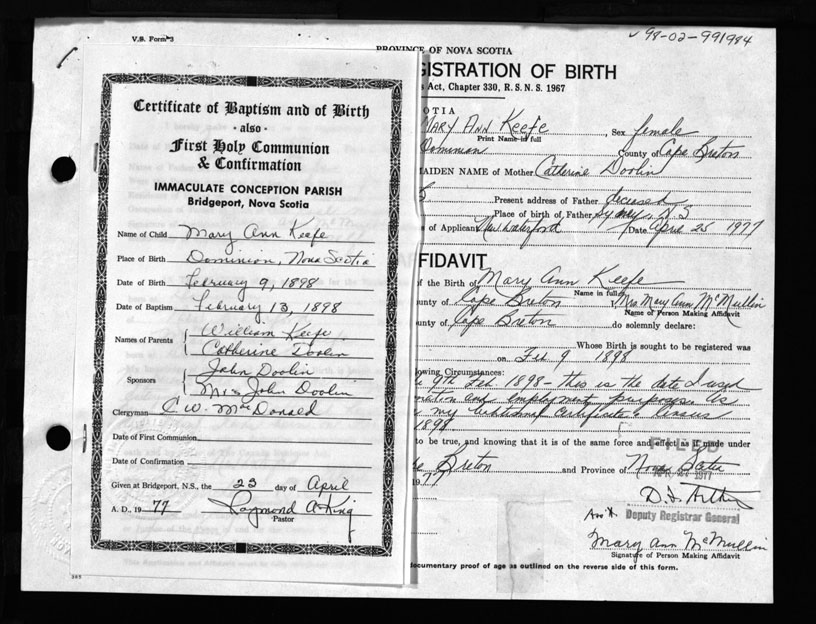 V.S. Form 3
Certificate of Baptism and of Birth
· also ·
First Holy Communion
& Confirmation
IMMACULATE CONCEPTION PARISH
Bridgeport, Nova Scotia
Name of Child Mary Ann Keefe
Place of Birth Dominion, Nova Scotia
Date of Birth February 9, 1898
Date of Baptism February 13, 1898
Names of Parents William Keefe
Catherine Doolin
Sponsors John Doolin
Mrs John Doolin
Clergyman C. W. MacDonald
Date of First Communion
Date of Confirmation
Given at Bridgeport, N.S., the 23 day of April
A. D., 1977 Raymond A King
Pastor
345
98-02-991984
PROVINCE OF NOVA SCOTIA
GISTRATION OF BIRTH
s Act, Chapter 330, R. S. N. S. 1967
OTIA
MARY ANN Keefe, Sex female
Print Name in full
Dominion County of Cape Breton
MAIDEN NAME of Mother Catherine Doolin
S Present address of Father deceased
Place of birth of Father Sydney N.S
s of Applicant New Waterford Date April 25 1977
FIDAVIT
f the Birth of Mary Ann Keefe
Name in full
unty of Cape Breton, Mrs Mary Ann McMullin
Name of Person Making Affidavit
unty of Cape Breton do solemnly declare:
Whose Birth is sought to be registered was
on Feb 9 1898
owing Circumstances:
9th Feb. 1898 - this is the date I used
mation and employment purposes. As
my baptismal certificate & census
1898
to be true, and knowing that it is of the same force and effect as if made under
FILED
pe Breton and Province of Nova Scotia
1977
1977
Deputy Registrar General
Mary Ann McMullin
Signature of Person Making Affidavit
documentary proof of age as outlined on the reverse side of this form.